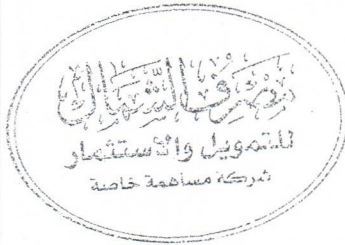 مصرف الشمال
للتمويل والاستثمار
شركة مساهمة خاصة